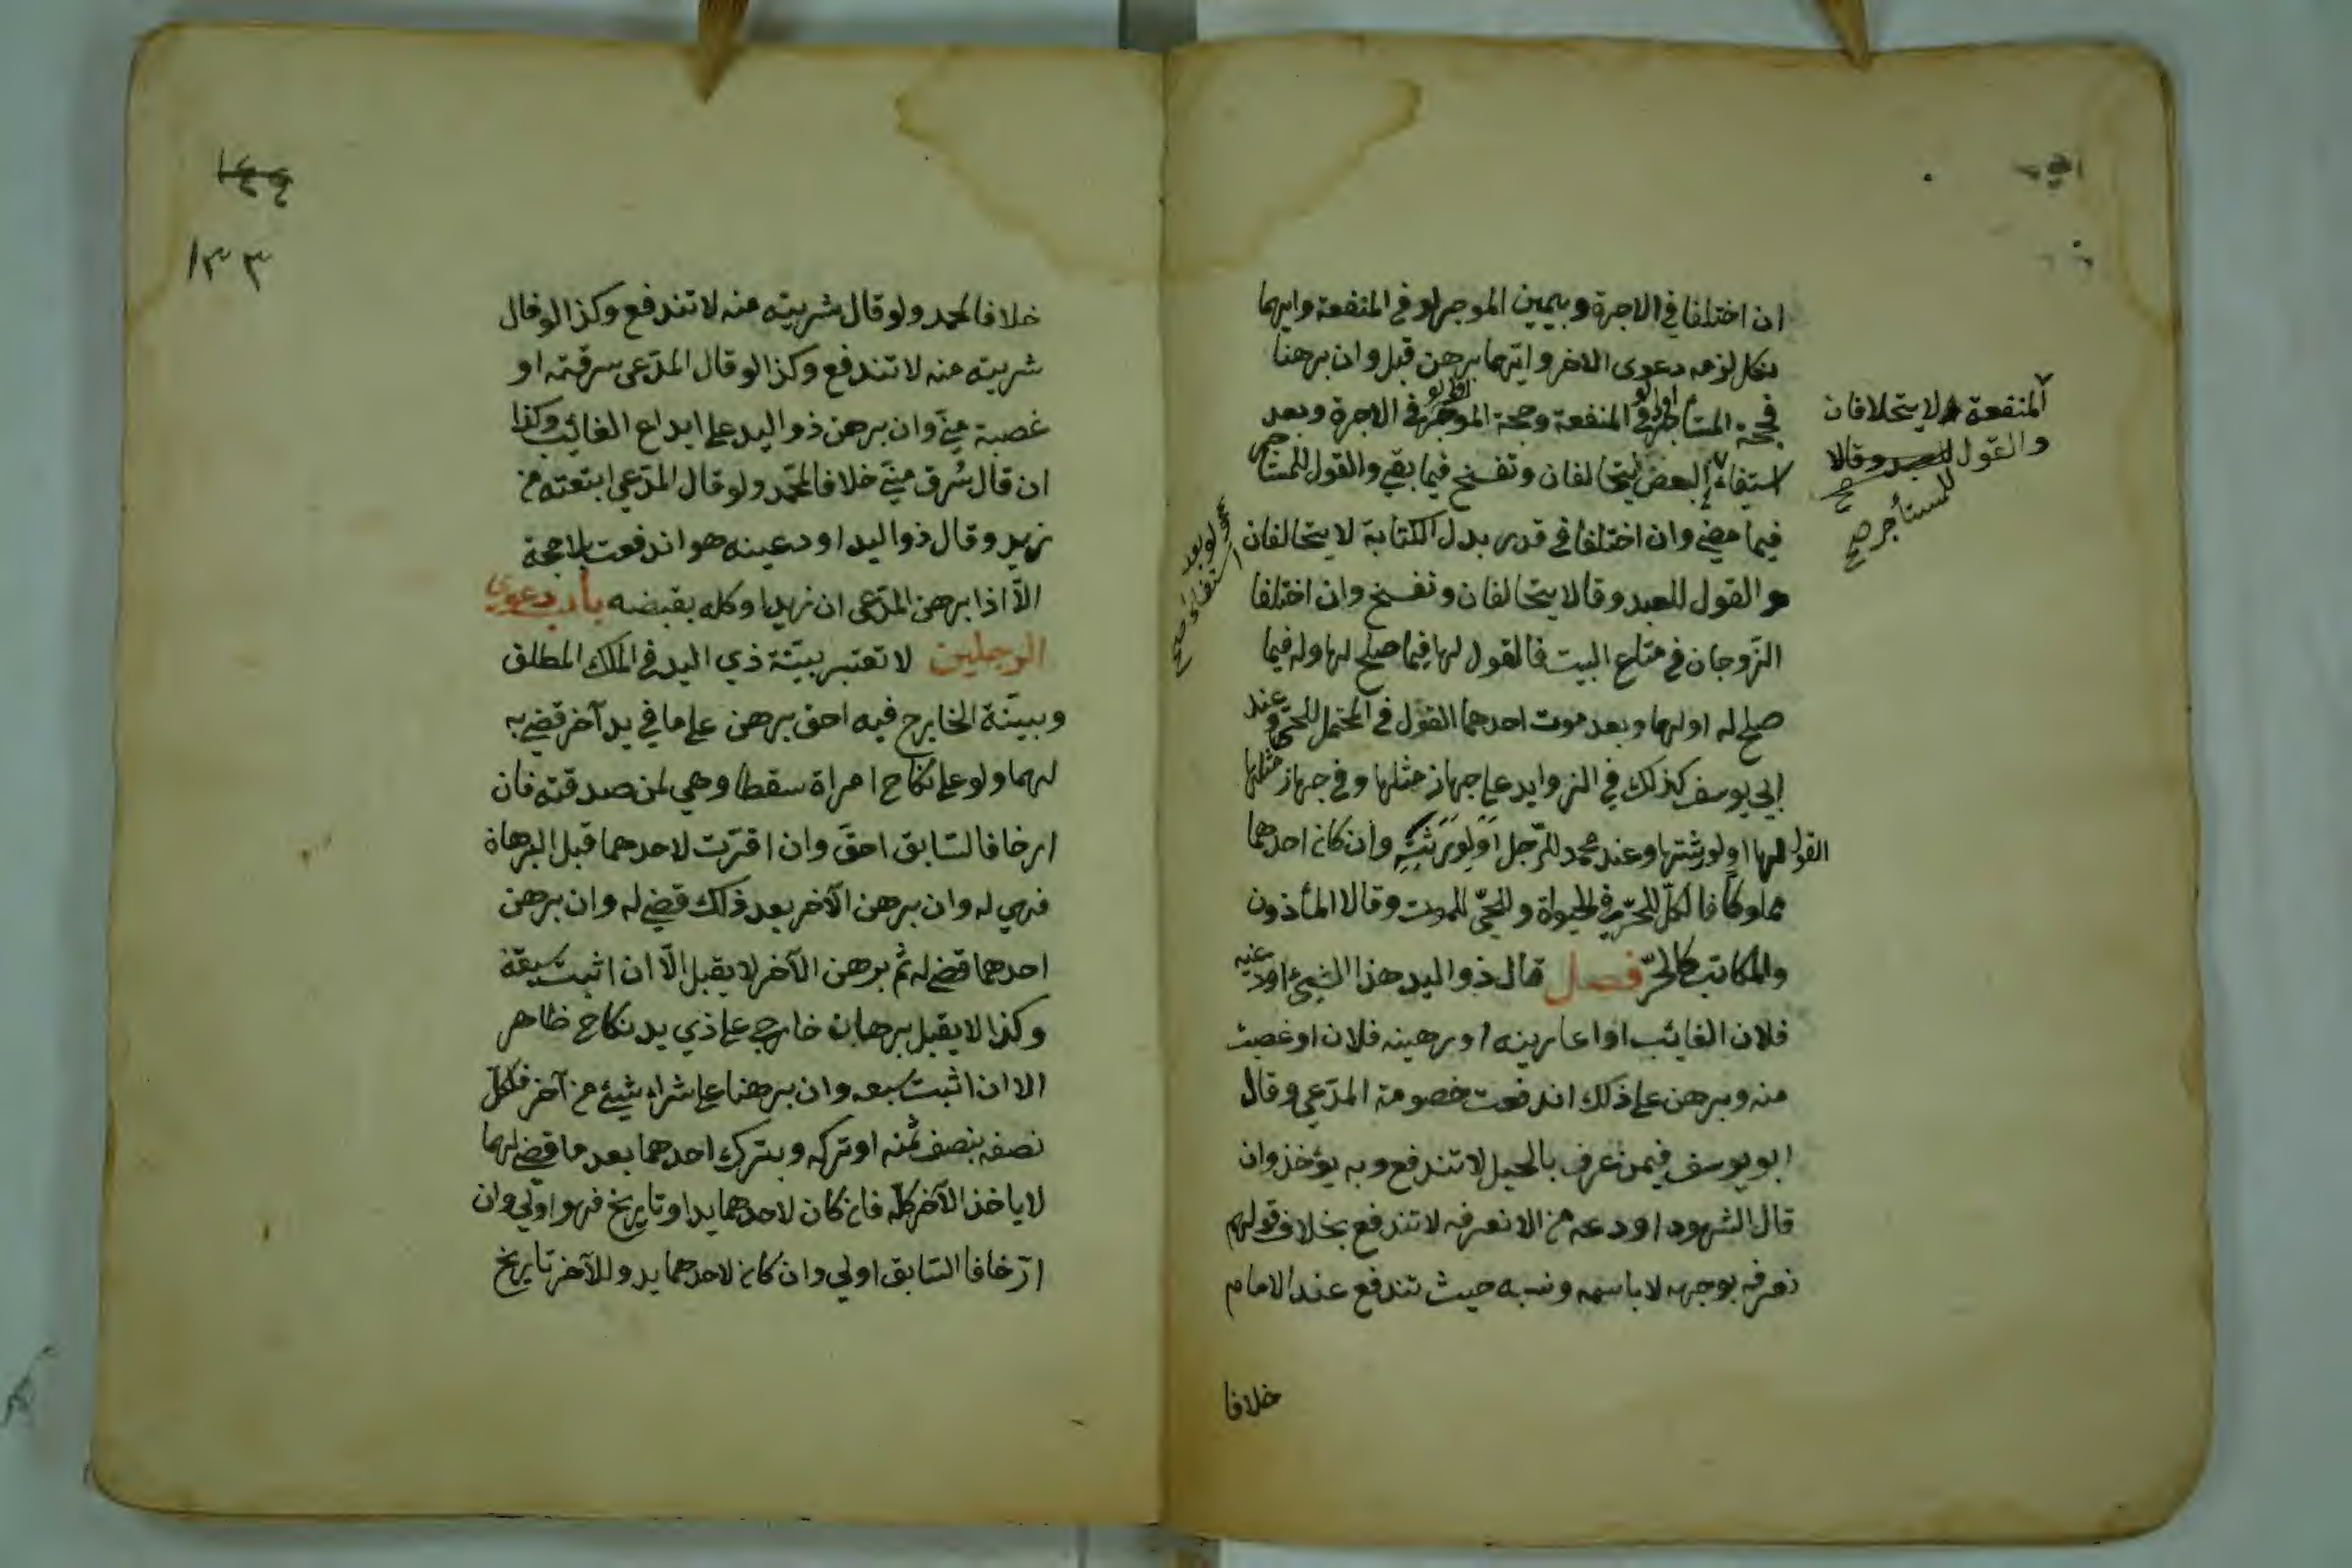 ان اختلفا في الاجرة وبيمين الموجر لو في المنفعة وايهما
نكل لزمه دعوى الاخر وايهما برهن قبل وان برهنا
فحجة المستأجر اولى لو في المنفعة وحجة الموجر اولى لو في الاجرة وبعد
استيفاء البعض يتحالفان وتفسخ فيما بقي والقول للمستأجر
فيما مضى وان اختلفا في قدر بدل الكتابة لا يتحالفان
والقول للعبد وقالا يتحالفان وتفسخ وان اختلفا
الزوجان في متاع البيت فالقول لها فيما صلح لها وله فيما
صلح له او لهما وبعد موت احدهما القول في المحتمل للحي وعند
ابي يوسف كذلك في الزوايد على جهاز مثلها وفي جهاز مثلها
القول لها او لورثتها وعند محمد للرجل او لورثته وان كان احدهما
مملوكا فالكل للحر في الحيوة وللحي للموت وقالا المأذون
والمكاتب كالحر فصل قال ذو اليد هذا الشيئ اودعنيه
فلان الغائب او اعارينه او رهينه فلان او غصبت
منه وبرهن على ذلك اندفعت خصومة المدعي وقال
ابو يوسف فيمن عرف بالحيل لا تندفع وبه يؤخذ وان
قال الشهود اودعه من لا نعرفه لا تندفع بخلاف قولهم
نعرفه بوجهه لا باسمه ونسبه حيث تندفع عند الامام
خلافا
المنفعة لا يتحلافان
والقول للعبد وقالا
للمستأجر صح
ولو بعد
استيفاء صح
١٣٣
خلافا لمحمد ولو قال شريته منه لا تندفع وكذا لو قال
شريته منه لا تندفع وكذا لو قال المدعي سرقته او
غصبة مني وان برهن ذو اليد على ايداع الغائب وكذا
ان قال سُرق مني خلافا لمحمد ولو قال المدعي ابتعته من
زيد وقال ذو اليد اودعينه هو اندفعت بلا حجة
الا اذا برهن المدعى ان زيدا وكله بقبضه باب دعوى
الرجلين لا تعتبر بينة ذي اليد في الملك المطلق
وبينة الخارج فيه احق برهن على ما في يد آخر قضي به
لهما ولو على نكاح امراة سقطا وهي لمن صدقته فان
ارخا فالسابق احق وان اقرت لاحدهما قبل البرهاة
فهي له وان برهن الآخر بعد ذلك قضي له وان برهن
احدهما قضي له ثم برهن الآخر لا يقبل الا ان اثبت سبقه
وكذا لا يقبل برهان خارجي على ذي يد نكاح ظاهر
الا ان اثبت سبعه وان برهنا على شراء شيئ من آخر فلكل
نصفه بنصف ثمنه او تركه وبترك احدهما بعد ما قضي لهما
لا ياخذ الآخر كله فان كان لاحدهما يد او تاريخ فهو اولى وان
ارخا فالسابق اولى وان كان لاحدهما يد وللآخر تاريخ